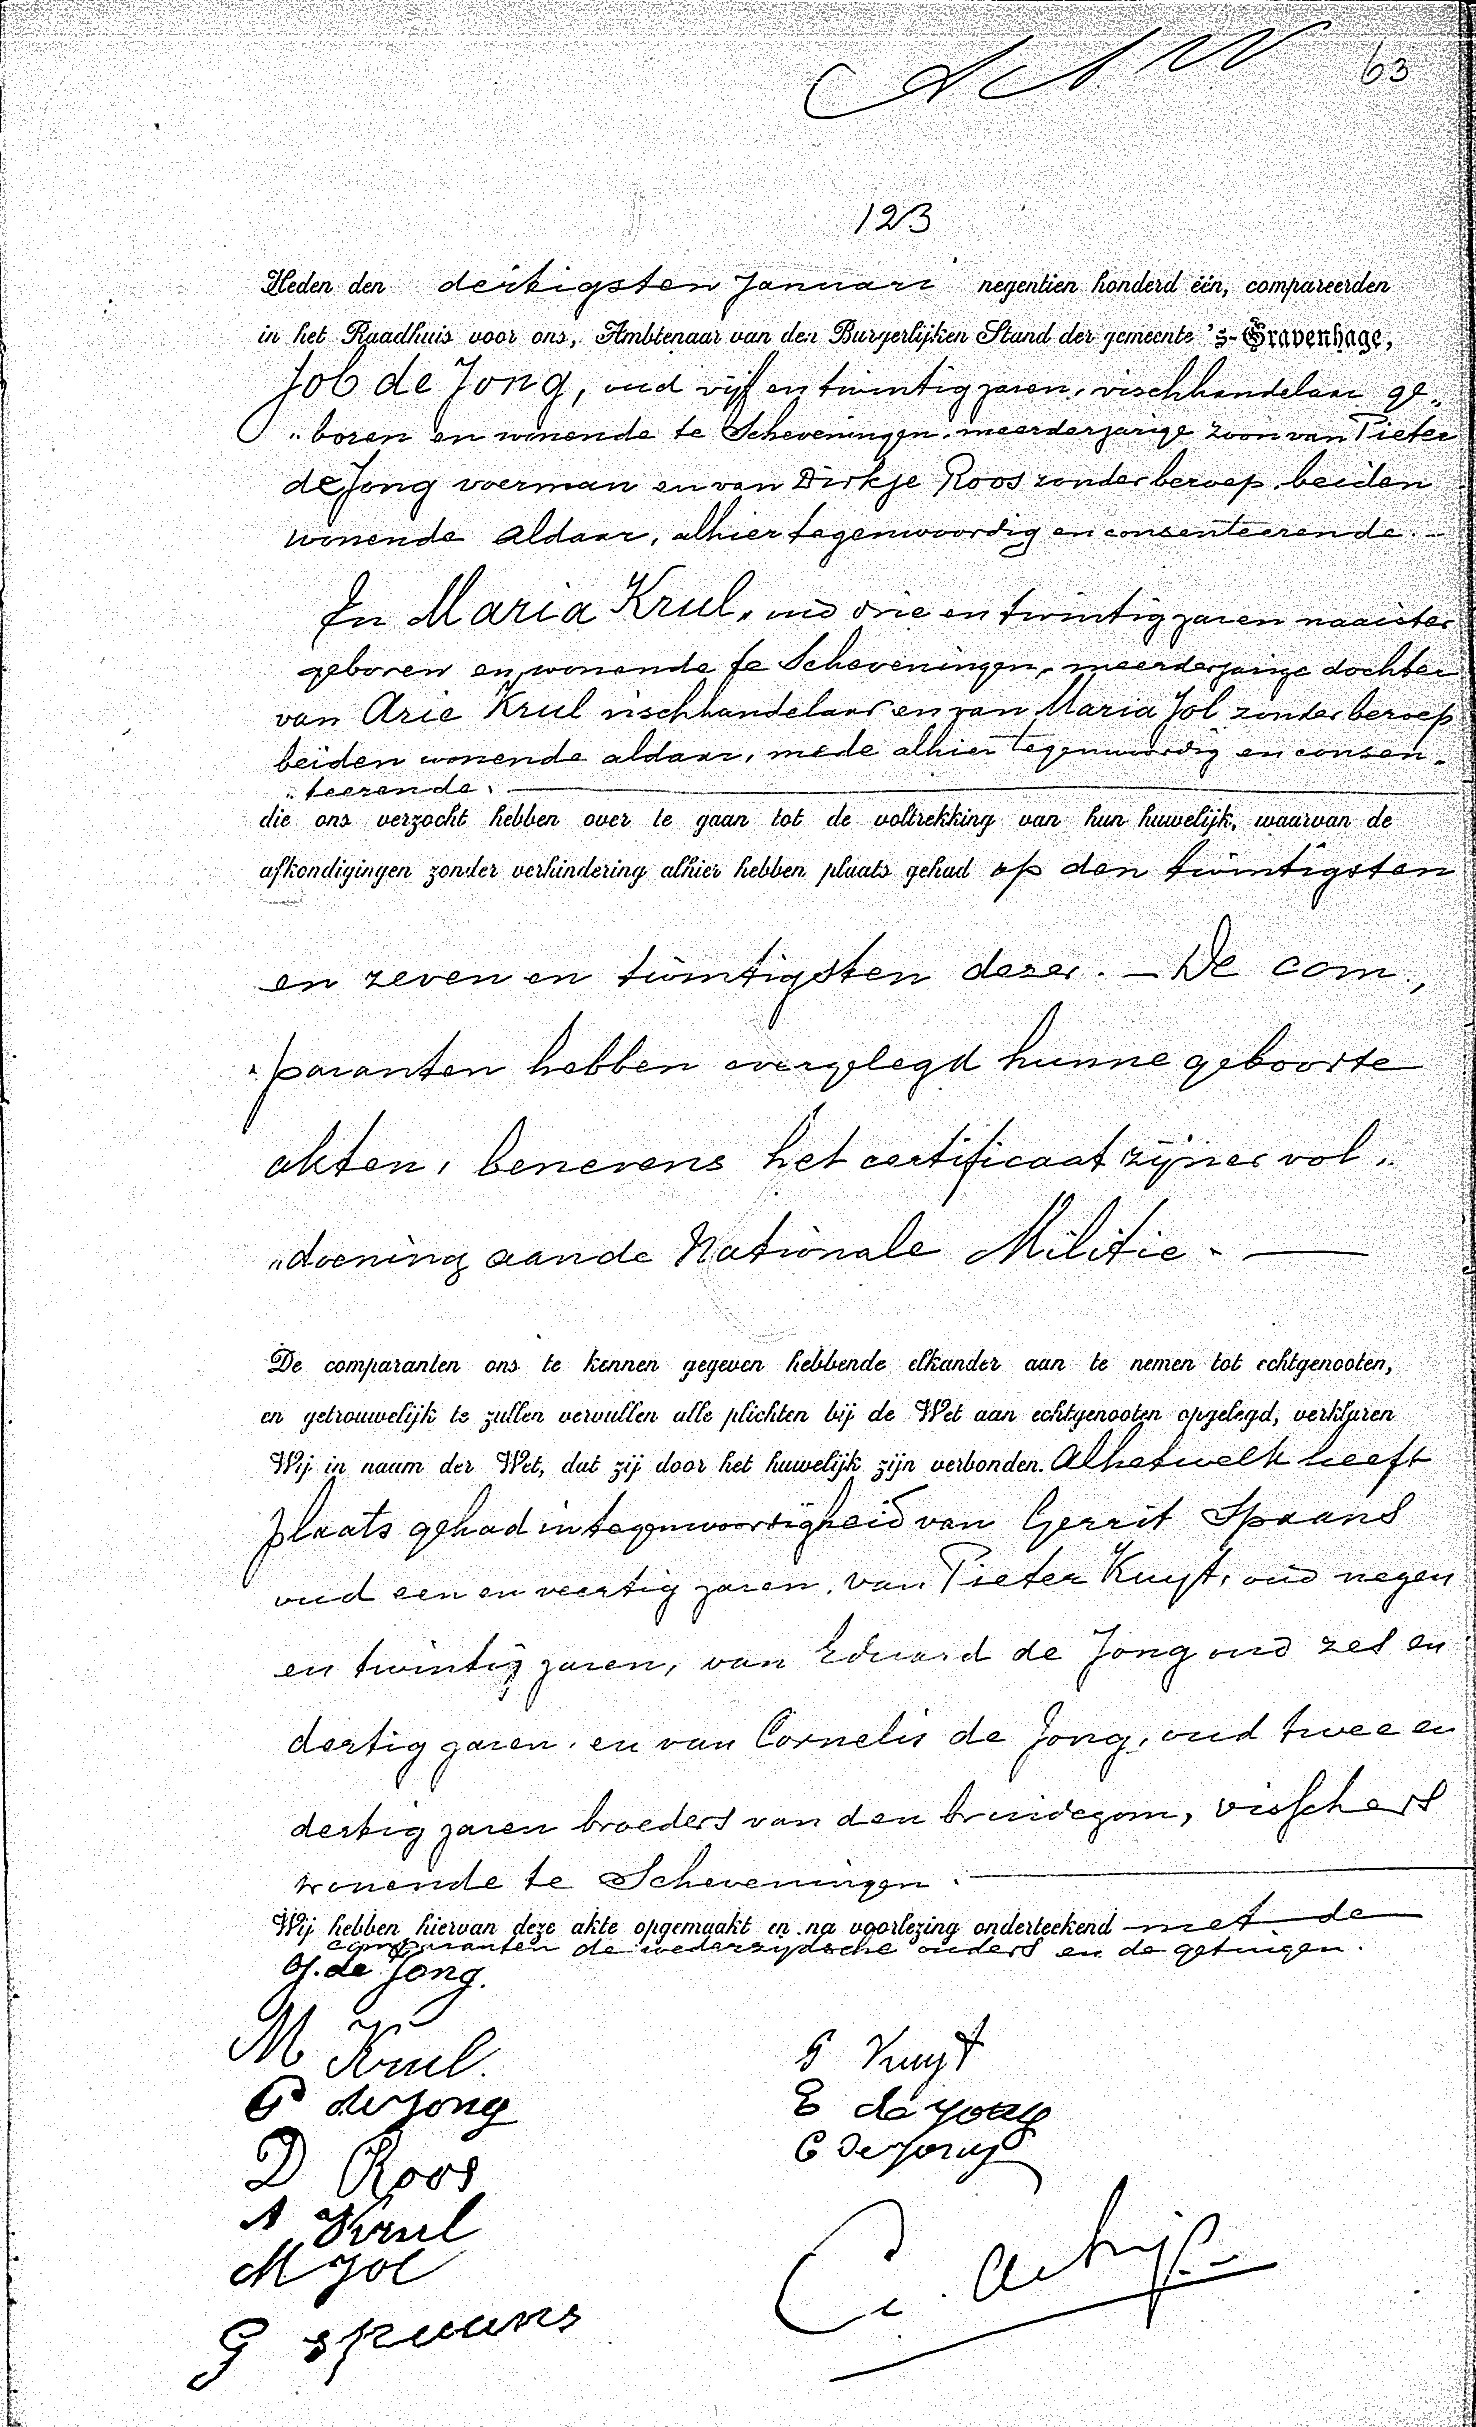 63
123
Heden den dertigsten Januari negentien honderd één, compareerden
in het Raadhuis voor ons, Ambtenaar van den Burgerlijken Stand der gemeente 's-Gravenhage,
Job de Jong, oud vijf en twintig jaren, vischhandelaar ge„
„boren en wonende te Scheveningen, meerderjarige zoon van Pieter
de Jong voerman en van Dirkje Roos zonder beroep, beiden
wonende aldaar, alhier tegenwoordig en consenteerende. —
En Maria Krul, oud drie en twintig jaren naaister
geboren en wonende te Scheveningen, meerderjarige dochter
van Arie Krul vischhandelaar en van Maria Jol zonder beroep
beiden wonende aldaar, mede alhier tegenwoordig en consen„
„teerende. —
die ons verzocht hebben over te gaan tot de voltrekking van hun huwelijk, waarvan de
afkondigingen zonder verhindering alhier hebben plaats gehad op den twintigsten
en zeven en twintigsten dezer. — De com„
„paranten hebben overgelegd hunne geboorte
akten, benevens het certificaat zijner vol„
„doening aan de Nationale Militie. —
De comparanten ons te kennen gegeven hebbende elkander aan te nemen tot echtgenooten,
en getrouwelijk te zullen vervullen alle plichten bij de Wet aan echtgenooten opgelegd, verklaren
Wij in naam der Wet, dat zij door het huwelijk zijn verbonden. Alhetwelk heeft
plaats gehad in tegenwoordigheid van Gerrit Spaans
oud een en veertig jaren, van Pieter Kuyt, oud negen
en twintig jaren, van Eduard de Jong oud zes en
dertig jaren, en van Cornelis de Jong, oud twee en
dertig jaren broeders van den bruidegom, visschers
wonende te Scheveningen. —
Wij hebben hiervan deze akte opgemaakt en na voorlezing onderteekend met de
comparanten de wederzijdsche ouders en de getuigen.
J. de Jong.
M Krul.
P de Jong
D Roos
A Krul
M Jol
G Spaans
P Kuyt
E de Jong
C de Jong